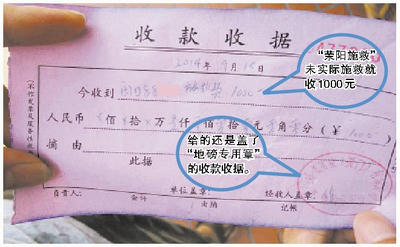 收款收据
2014年9月15日
今收到
1000
人民币 佰 拾 万 仟 佰 拾 元 角 分（￥1000
摘由
此据
负责人： 会计 单位盖章： 出纳 经收人盖章： 记帐
（不作发票及服务性收
“荥阳施救”
未实际施救就
收1000元
给的还是盖了
“地磅专用章”
的收款收据。